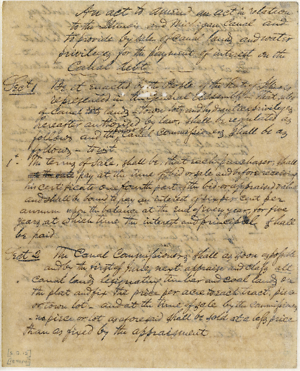 An act to amend an act in relation
to the Illinois and Michigan Canal and
to provide by sale of Canal lands and water
for the payment of interest on the
Canal debt.
Sect 1 Be it enacted by the People of the State of Illinois
represented in the General Assembly, That sales
of Canal lots, lands, town lots
hereto authorized by law, shall be regulated as
follows, and the Canal Commissioners shall be as
follows, to wit
1st The terms of sale, shall be, that each purchaser, shall
pay at the time of sale and before receiving
his certificate one fourth part of the bid or appraised value
and shall be bound to pay an interest of six per cent per
annum upon the balance at the end of every year, for five
years at which time the interest and principal shall
be paid
Sect 2 The Canal Commissioners shall as soon as possible
and by the first of next appraise and class all
canal land, designating timber and coal land, on
the plat and fix the price per acre to each tract, piece
or town lot and at the time of sale by the Commissioners
no piece or lot as aforesaid shall be sold at a less price
than as fixed by the appraisment